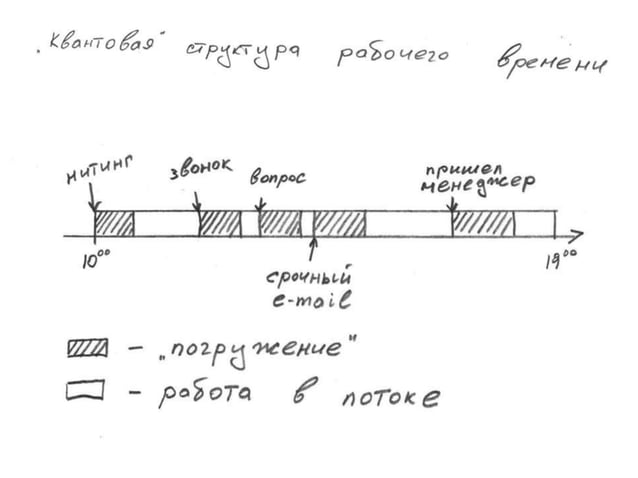 „Квантовая“ структура рабочего времени
митинг
звонок
вопрос
пришел
менеджер
10⁰⁰
19⁰⁰
срочный
e-mail
– „погружение“
– работа в потоке